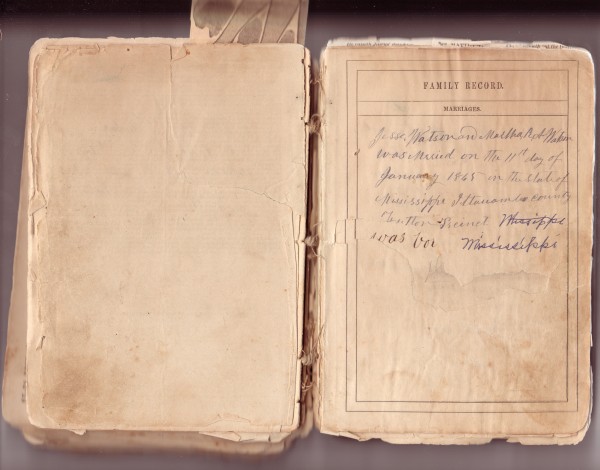 FAMILY RECORD.
MARRIAGES.
Jesse Watson and Martha A Watson
was Maried on the 11th day of
January 1865 in the State of
Mississippi Itawamba county
Fulton Precinct Mississippi
was bor Mississippi